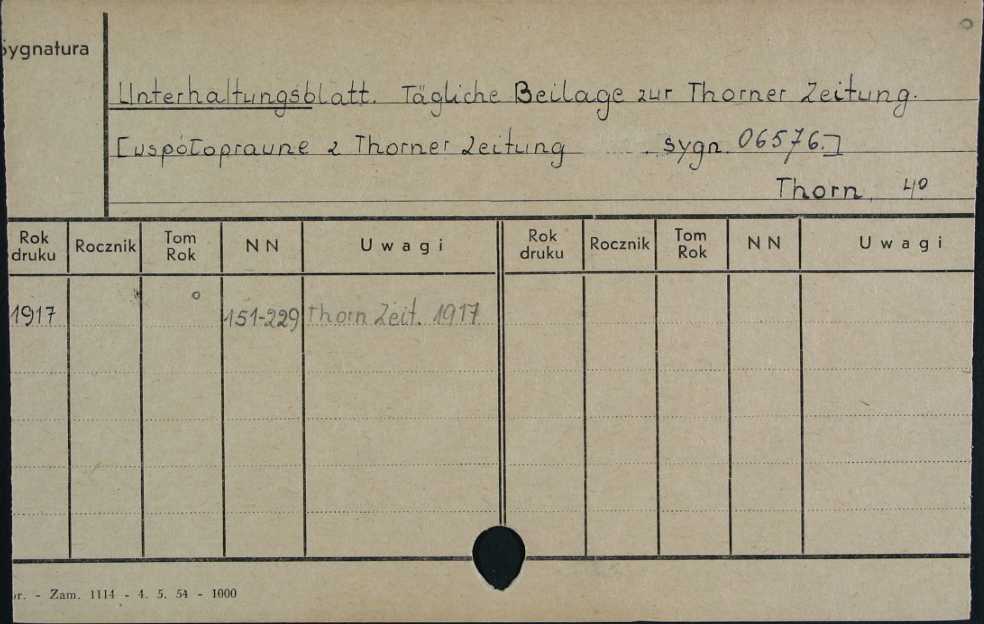 Sygnatura
Unterhaltungsblatt. Tägliche Beilage zur Thorner Zeitung.
[współoprawne z Thorner Zeitung . sygn. 06576.]
Thorn, 4º
Rok druku Rocznik Tom Rok NN Uwagi Rok druku Rocznik Tom Rok NN Uwagi
1917 151-229 Thorn Zeit. 1917
- Zam. 1114 - 4. 5. 54 - 1000